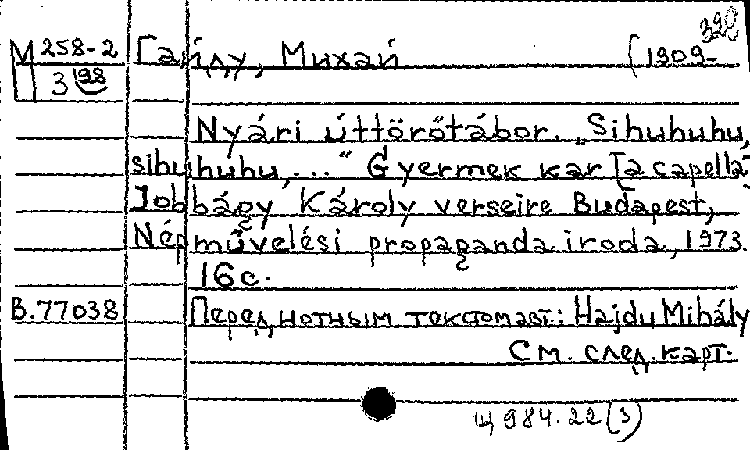 390
М 258-2 Гайду, Михай (1909-
3 98
Nyári úttörőtábor. „Sihuhuhu,
sihuhuhu,..." Gyermek kar [a capella]
Jobbágy Károly verseire Budapest,
Népművelési propaganda iroda, 1973.
16 с.
В.77038 Перед нотным текстом авт.: Hajdu Mihály
См. след. карт.
Щ 984.22(3)